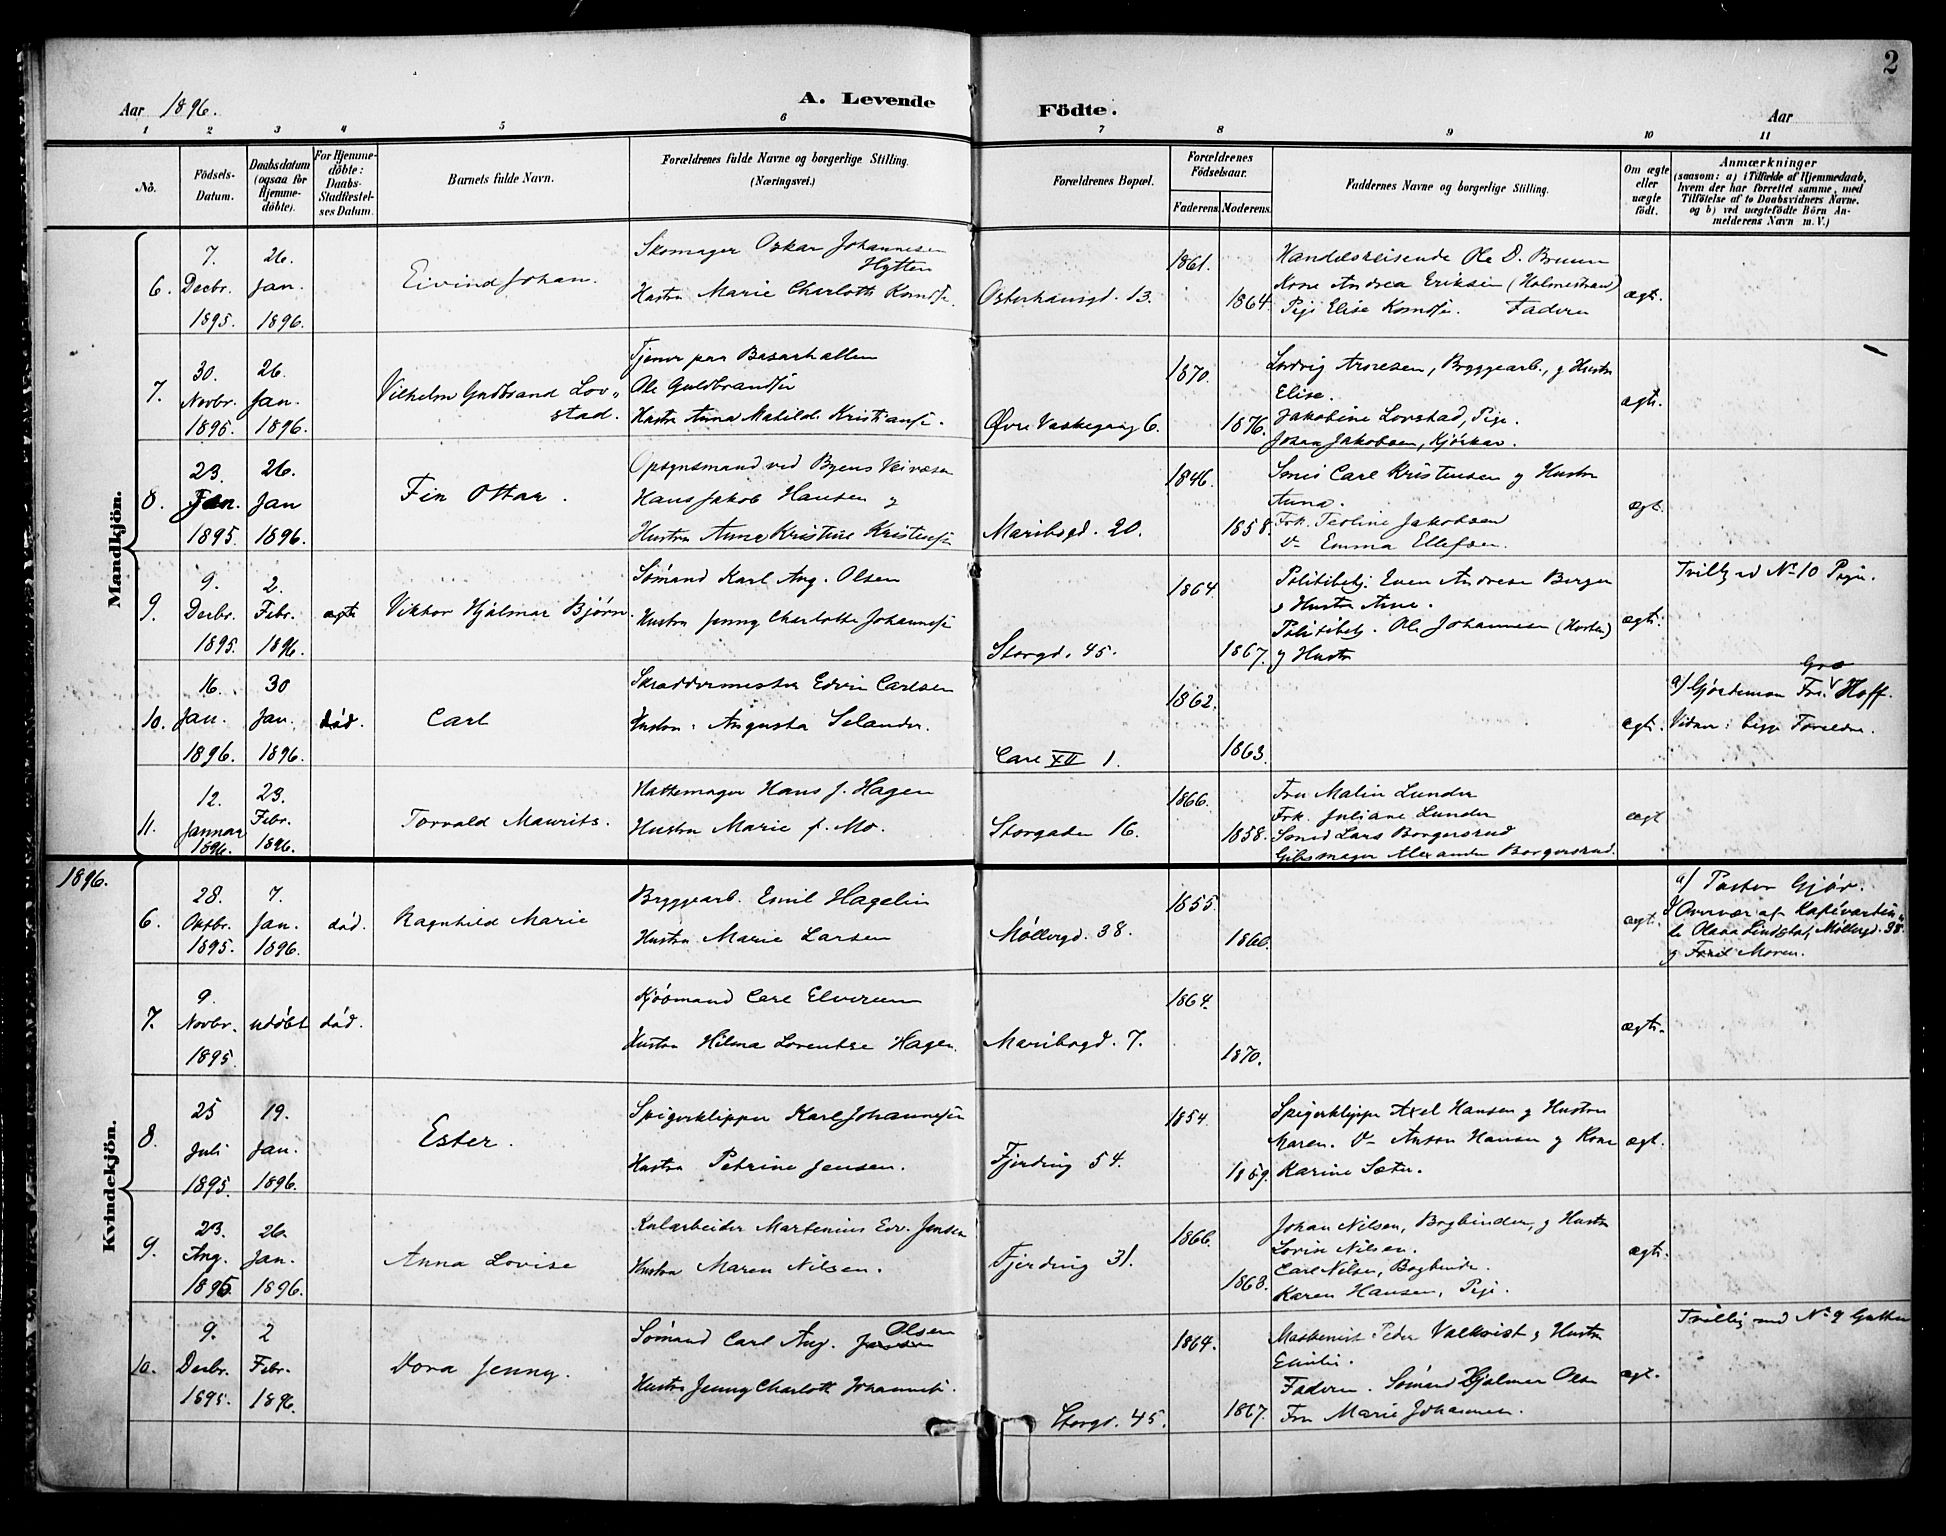 2
Aar 1896.
A. Levende
Födte.
Aar
1 2 3 4 5 6 7 8 9 10 11
No.
Födsels-
Datum.
Daabsdatum
(ogsaa for
Hjemme-
döbte).
For Hjemme-
döbte:
Daabs-
Stadfæstel-
ses Datum.
Barnets fulde Navn.
Forældrenes fulde Navne og borgerlige Stilling.
(Næringsvei.)
Forældrenes Bopæl.
Forældrenes
Födselsaar.
Faderens. Moderens.
Faddernes Navne og borgerlige Stilling.
Om ægte
eller
uægte
födt.
Anmærkninger
(saasom: a) i Tilfælde af Hjemmedaab,
hvem der har forrettet samme, med
Tilföielse af to Daabsvidners Navne.
og b) ved uægtefödte Börn An-
melderens Navn m. V.)
Mandkjön.
6.
7.
Decbr.
1895.
26.
Jan.
1896.
Eivind Johan.
Skomager Oskar Johannesen
Hytten
Hustru Marie Charlotte
Osterhausgd. 13.
1861.
1864.
Handelsreisende Ole D. Bruun
Kone Andrea Eriksen (Holmestrand)
Pige Elise Faderen
ægt.
7.
30.
Novbr.
1895.
26.
Jan.
1896.
Vilhelm Gudbrand Lov-
stad.
Tjener paa Basarhallen
Ole Guldbrandsen
Hustru Anna Matilde Kristiansen.
Øvre Vaskegang 6.
1870.
1876.
Ludvig Arnesen, Bryggearb., g Hustru
Elise.
Jakobine Lovstad, Pige.
Johan Jakobsen, Kjørkar.
ægt.
8.
23.
Jan.
1895.
26.
Jan
1896.
Fin Ottar.
Opsynsmand ved Byens Veivæsen
Hans Jakob Hansen g
Hustru Anne Kristine Kristensen
Maribogd. 20.
1846.
1858.
Smed Carl Kristensen g Hustru
Anna.
Frk. Teoline Jakobsen
Emma Ellefsen.
ægt.
9.
9.
Decbr.
1895.
2.
Febr.
1896.
ægt
Viktor Hjalmar Bjørn.
Sømand Karl Aug. Olsen
Hustru Jenny Charlotte Johannesen
Storgd. 45.
1864.
1867.
Politibetj. Even Andresen Berger
g Hustru
Politibetj. Ole Johannesen (Horten)
g Hustru
ægt.
Tvilling m No 10 Pigen.
10.
16.
Jan.
1896.
30
Jan.
1896.
død.
Carl
Skræddermester Edvin Carlsen
Hustru: Augusta Selander.
Carl XII 1.
1862.
1863.
ægt.
a) Gjordemor Fru Hoff.
Vidner: begge Forældre.
11.
12.
Januar
1896.
23.
Febr.
1896.
Torvald Maurits.
Hattemager Hans J. Hagen
Hustru Marie f. Mo.
Storgaden 16.
1866.
1858.
Fru Malin Lunder
Frk. Juliane Lunder
Smed Lars Borgersrud
Gibsmager Alexander Borgersrud.
ægt
1896.
Kvindekjön.
6.
28.
Oktbr.
1895.
7.
Jan.
1896.
død.
Ragnhild Marie
Bryggearb. Emil Hagelin
Hustru Marie Larsen
Møllergd. 38.
1855.
1860.
ægt.
a) Pastor Gjør.
Overvær af Kafévertin-
de Olava Lindstad, Møllergd. 38.
g Moren.
7.
9.
Novbr.
1895.
udøbt
død.
Kjømand Carl Elverum
Hustru Hilma Lorentse Hagen.
Maribogd. 7.
1864.
1870.
ægt.
8.
25
Juli
1895.
19.
Jan.
1896.
Ester.
Spigerklipper Karl Johannesen
Hustru Petrine Jensen.
Fjerding 54.
1854.
1859.
Spigerklipper Axel Hansen g Hustru
Maren. Anton Hansen g Kone
Karine Sæter.
ægt.
9.
23.
Aug.
1895.
26.
Jan.
1896.
Anna Lovise
Kularbeider Martenius Edv. Jensen
Hustru Maren Nilsen.
Fjerding 31.
1866.
1868.
Johan Nilsen, Bogbinder, g Hustru
Lovise Nilsen.
Carl Nilsen, Bogbinder.
Karen Hansen, Pige.
ægt.
10.
9.
Decbr.
1895.
2
Febr.
1896.
Dora Jenny.
Olsen
Sømand Carl Aug. Jensen
Hustru Jenny Charlotte Johannesen.
Storgd. 45.
1864.
1867.
Maskinist Peder Valkvist g Hustru
Emilie.
Faderen. Sømand Hjalmar Olsen
Fru Marie Johannesen.
ægt.
Tvilling med No 9 Gutten